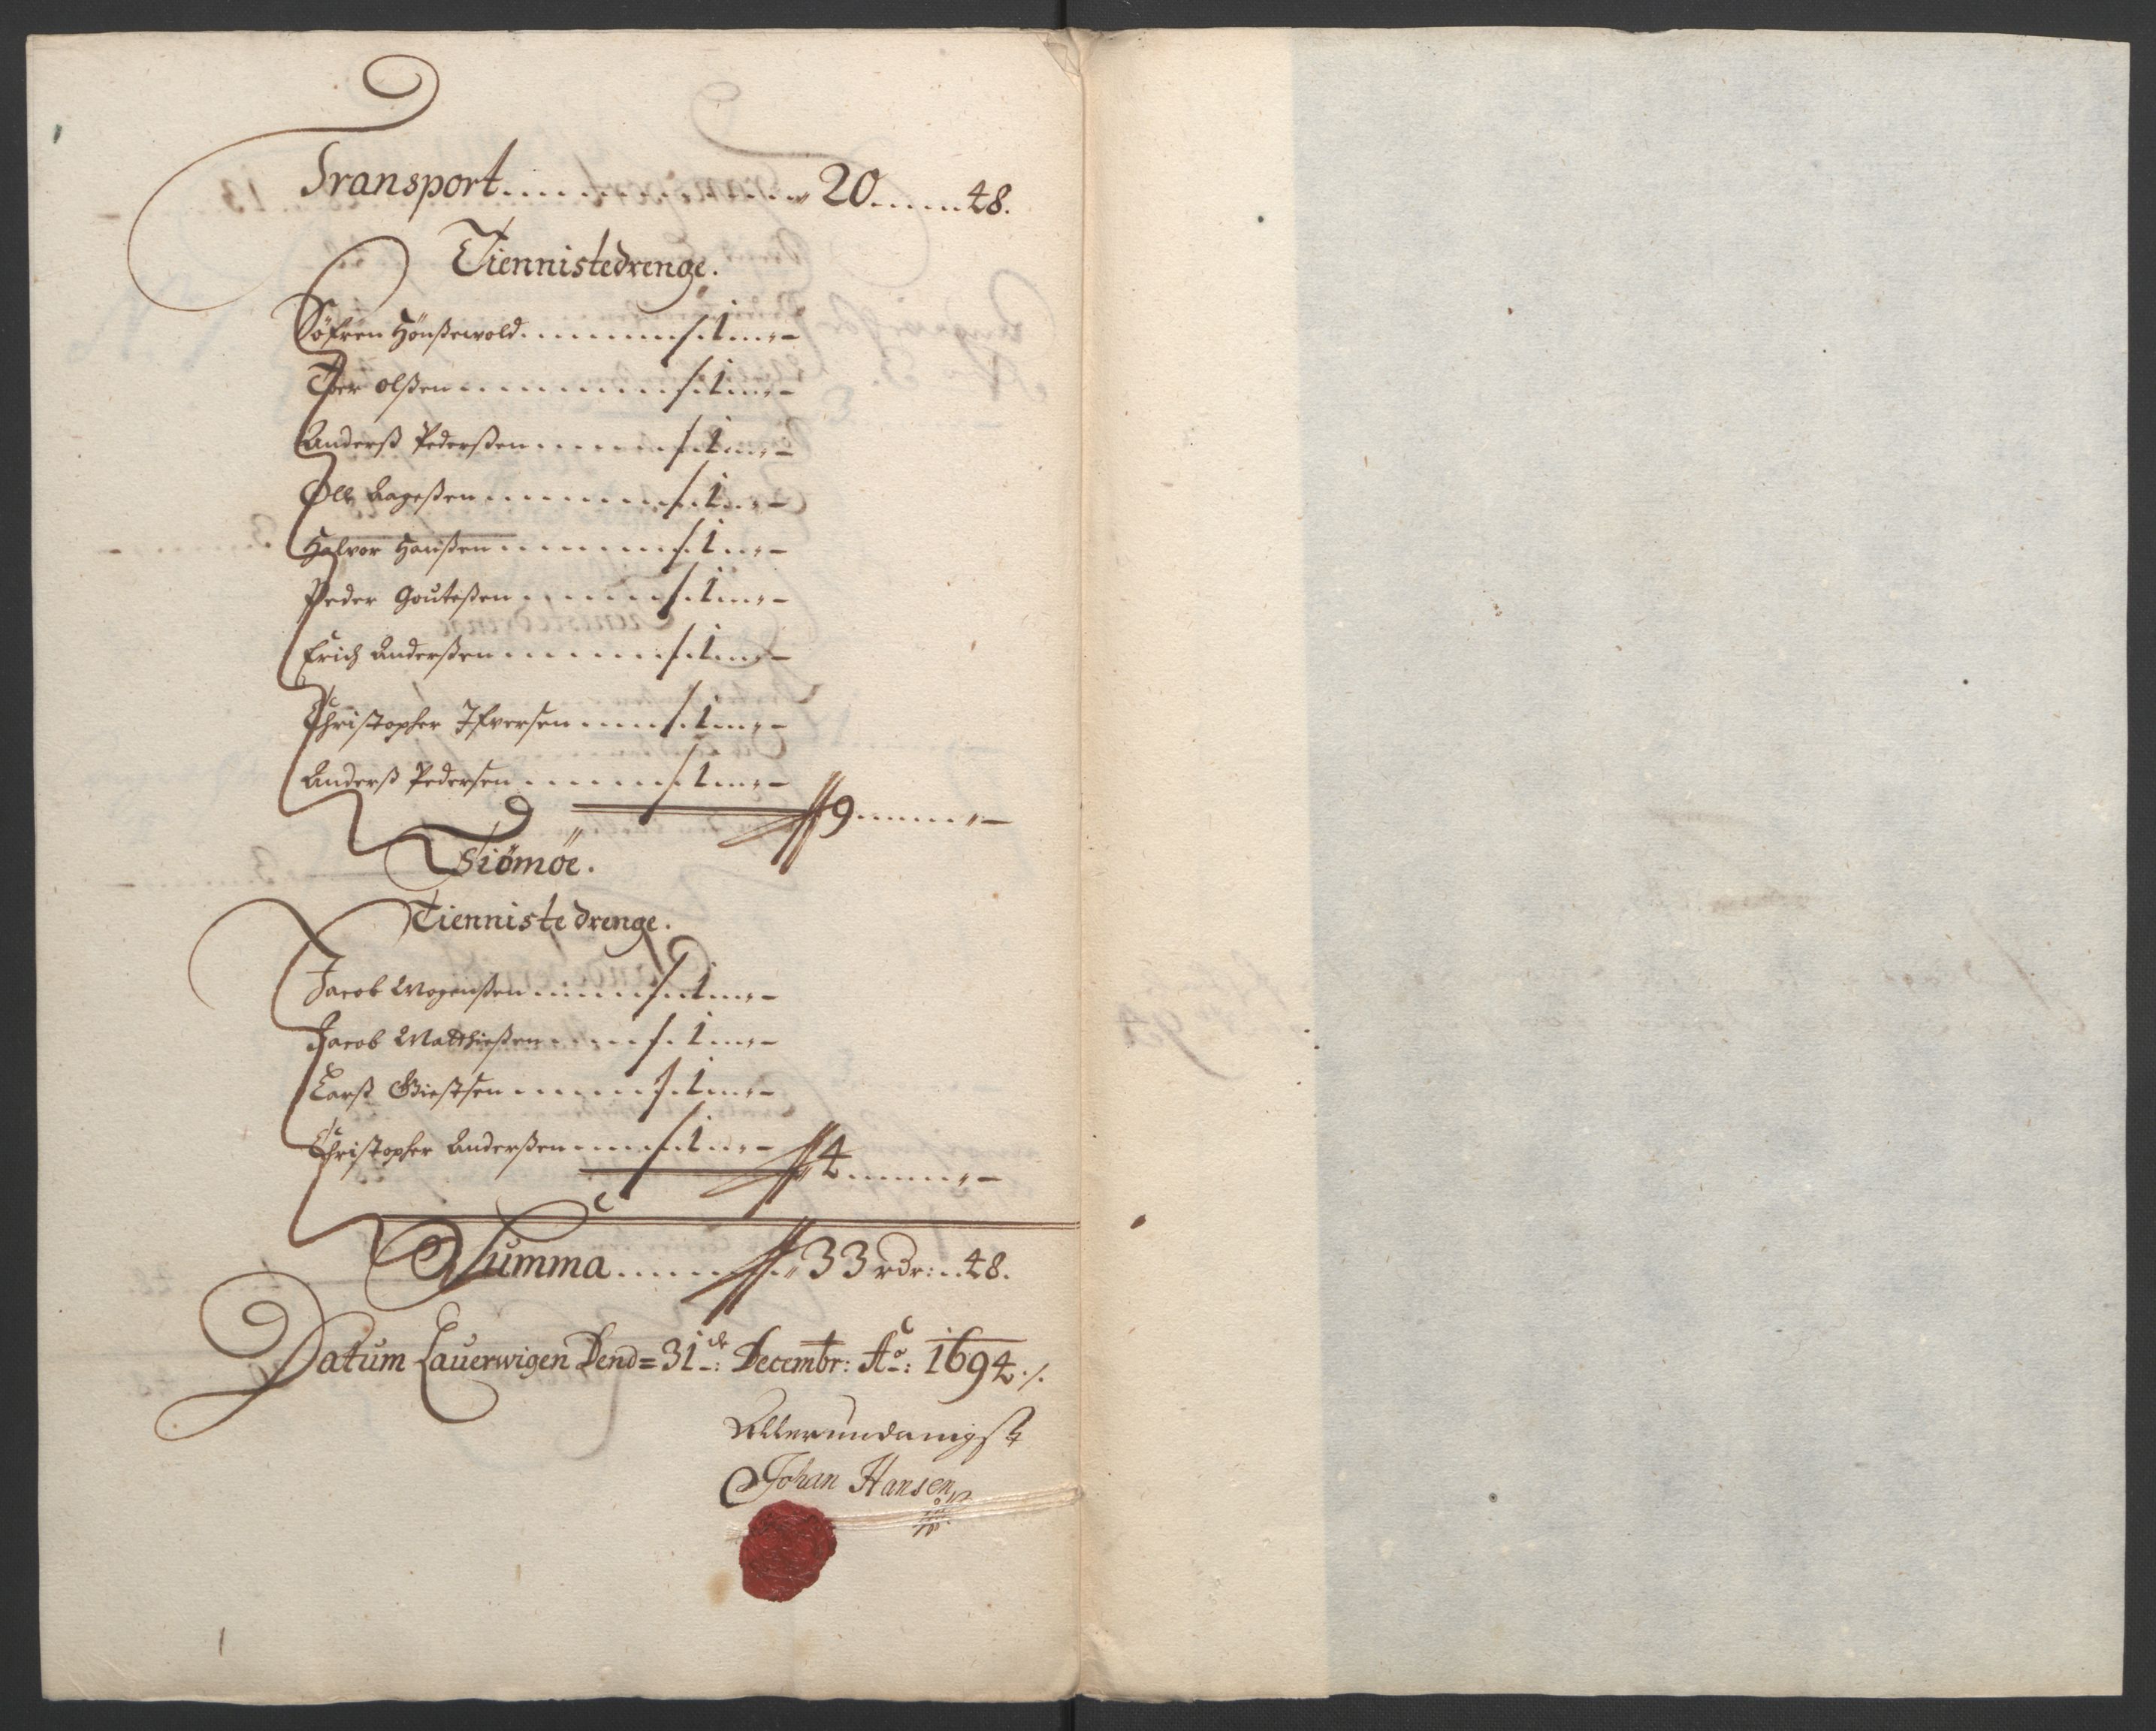 Transport . . . . . . . . . 20 . . . . . 48.
Tiennistedrenge.
Söfren Hönßewold . . . . . . . 1 . . . -
Tver olßen . . . . . . . . . 1 . . . -
Anderß Pederßen . . . . . . . 1 . . . -
Olle Aageßen . . . . . . . . 1 . . . -
Halvor Hanßen . . . . . . . 1 . . . -
Peder Gouteßen . . . . . . . 1 . . . -
Erich Anderßen . . . . . . . 1 . . . -
Christopher Ifversen . . . . . 1 . . . -
Anderß Pedersen . . . . . . . 1 . . . -
9 . . . . . . -
Tsiömöe.
Tienniste drenge.
Jacob Mogenßen . . . . . . . 1 . . . -
Jacob Matthießen . . . . . . 1 . . . -
Larß Giestsen . . . . . . . 1 . . . -
Christopher Anderßen . . . . . 1 . . . -
4 . . . . . . -
Summa . . . . . . . 33 rdr: . . 48.
Datum Lauerwigen Dend = 31de: Decembr: Ao: 1694 ./.
Allerundanigst
Johan Hansen